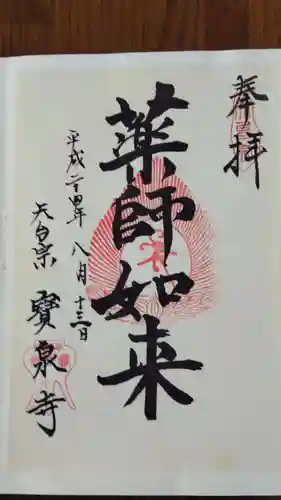 奉拝
薬師如来
平成二十四年 八月 十三日
天台宗 寳泉寺